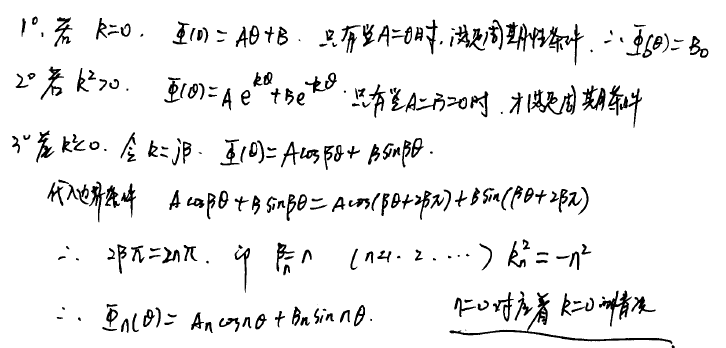 1°. 若 k=0. Φ(θ) = Aθ+B. 只有当A=0时,满足周期性条件. ∴ Φ₀(θ)=B₀
2° 若 k²>0. Φ(θ)=A e^{kθ}+Be^{-kθ}. 只有当A=B=0时, 才满足周期条件
3° 若 k²<0. 令 k=jβ. Φ(θ)=Acosβθ+Bsinβθ.
代入边界条件 Acosβθ+Bsinβθ=Acos(βθ+2βπ)+Bsin(βθ+2βπ)
∴ 2βπ=2nπ. 即 βₙ=n (n=1.2.…) kₙ²=-n²
∴ Φₙ(θ)=Aₙcosnθ+Bₙsin nθ. n=0对应着k=0的情况